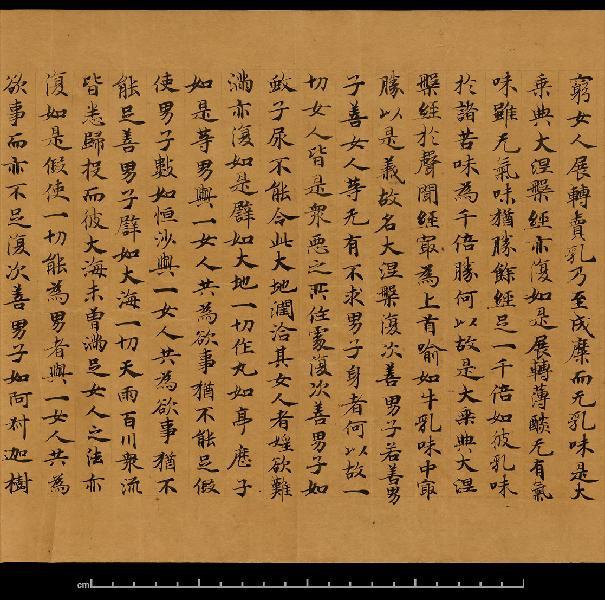 窮女人展轉賣乳乃至成糜而无乳味是大
乘典大涅槃經亦復如是展轉薄醨无有氣
味雖无氣味猶勝餘經足一千倍如彼乳味
於諸苦味為千倍勝何以故是大乘典大涅
槃經於聲聞經冣為上首喻如牛乳味中冣
勝以是義故名大涅槃復次善男子若善男
子善女人等无有不求男子身者何以故一
切女人皆是衆惡之所住處復次善男子如
蚊子尿不能令此大地潤洽其女人者婬欲難
滿亦復如是譬如大地一切作丸如亭歷子
如是等男與一女人共為欲事猶不能足假
使男子數如恒沙與一女人共為欲事猶不
能足善男子譬如大海一切天雨百川衆流
皆悉歸投而彼大海未曾滿足女人之法亦
復如是假使一切能為男者與一女人共為
欲事而亦不足復次善男子如阿叔迦樹
cm